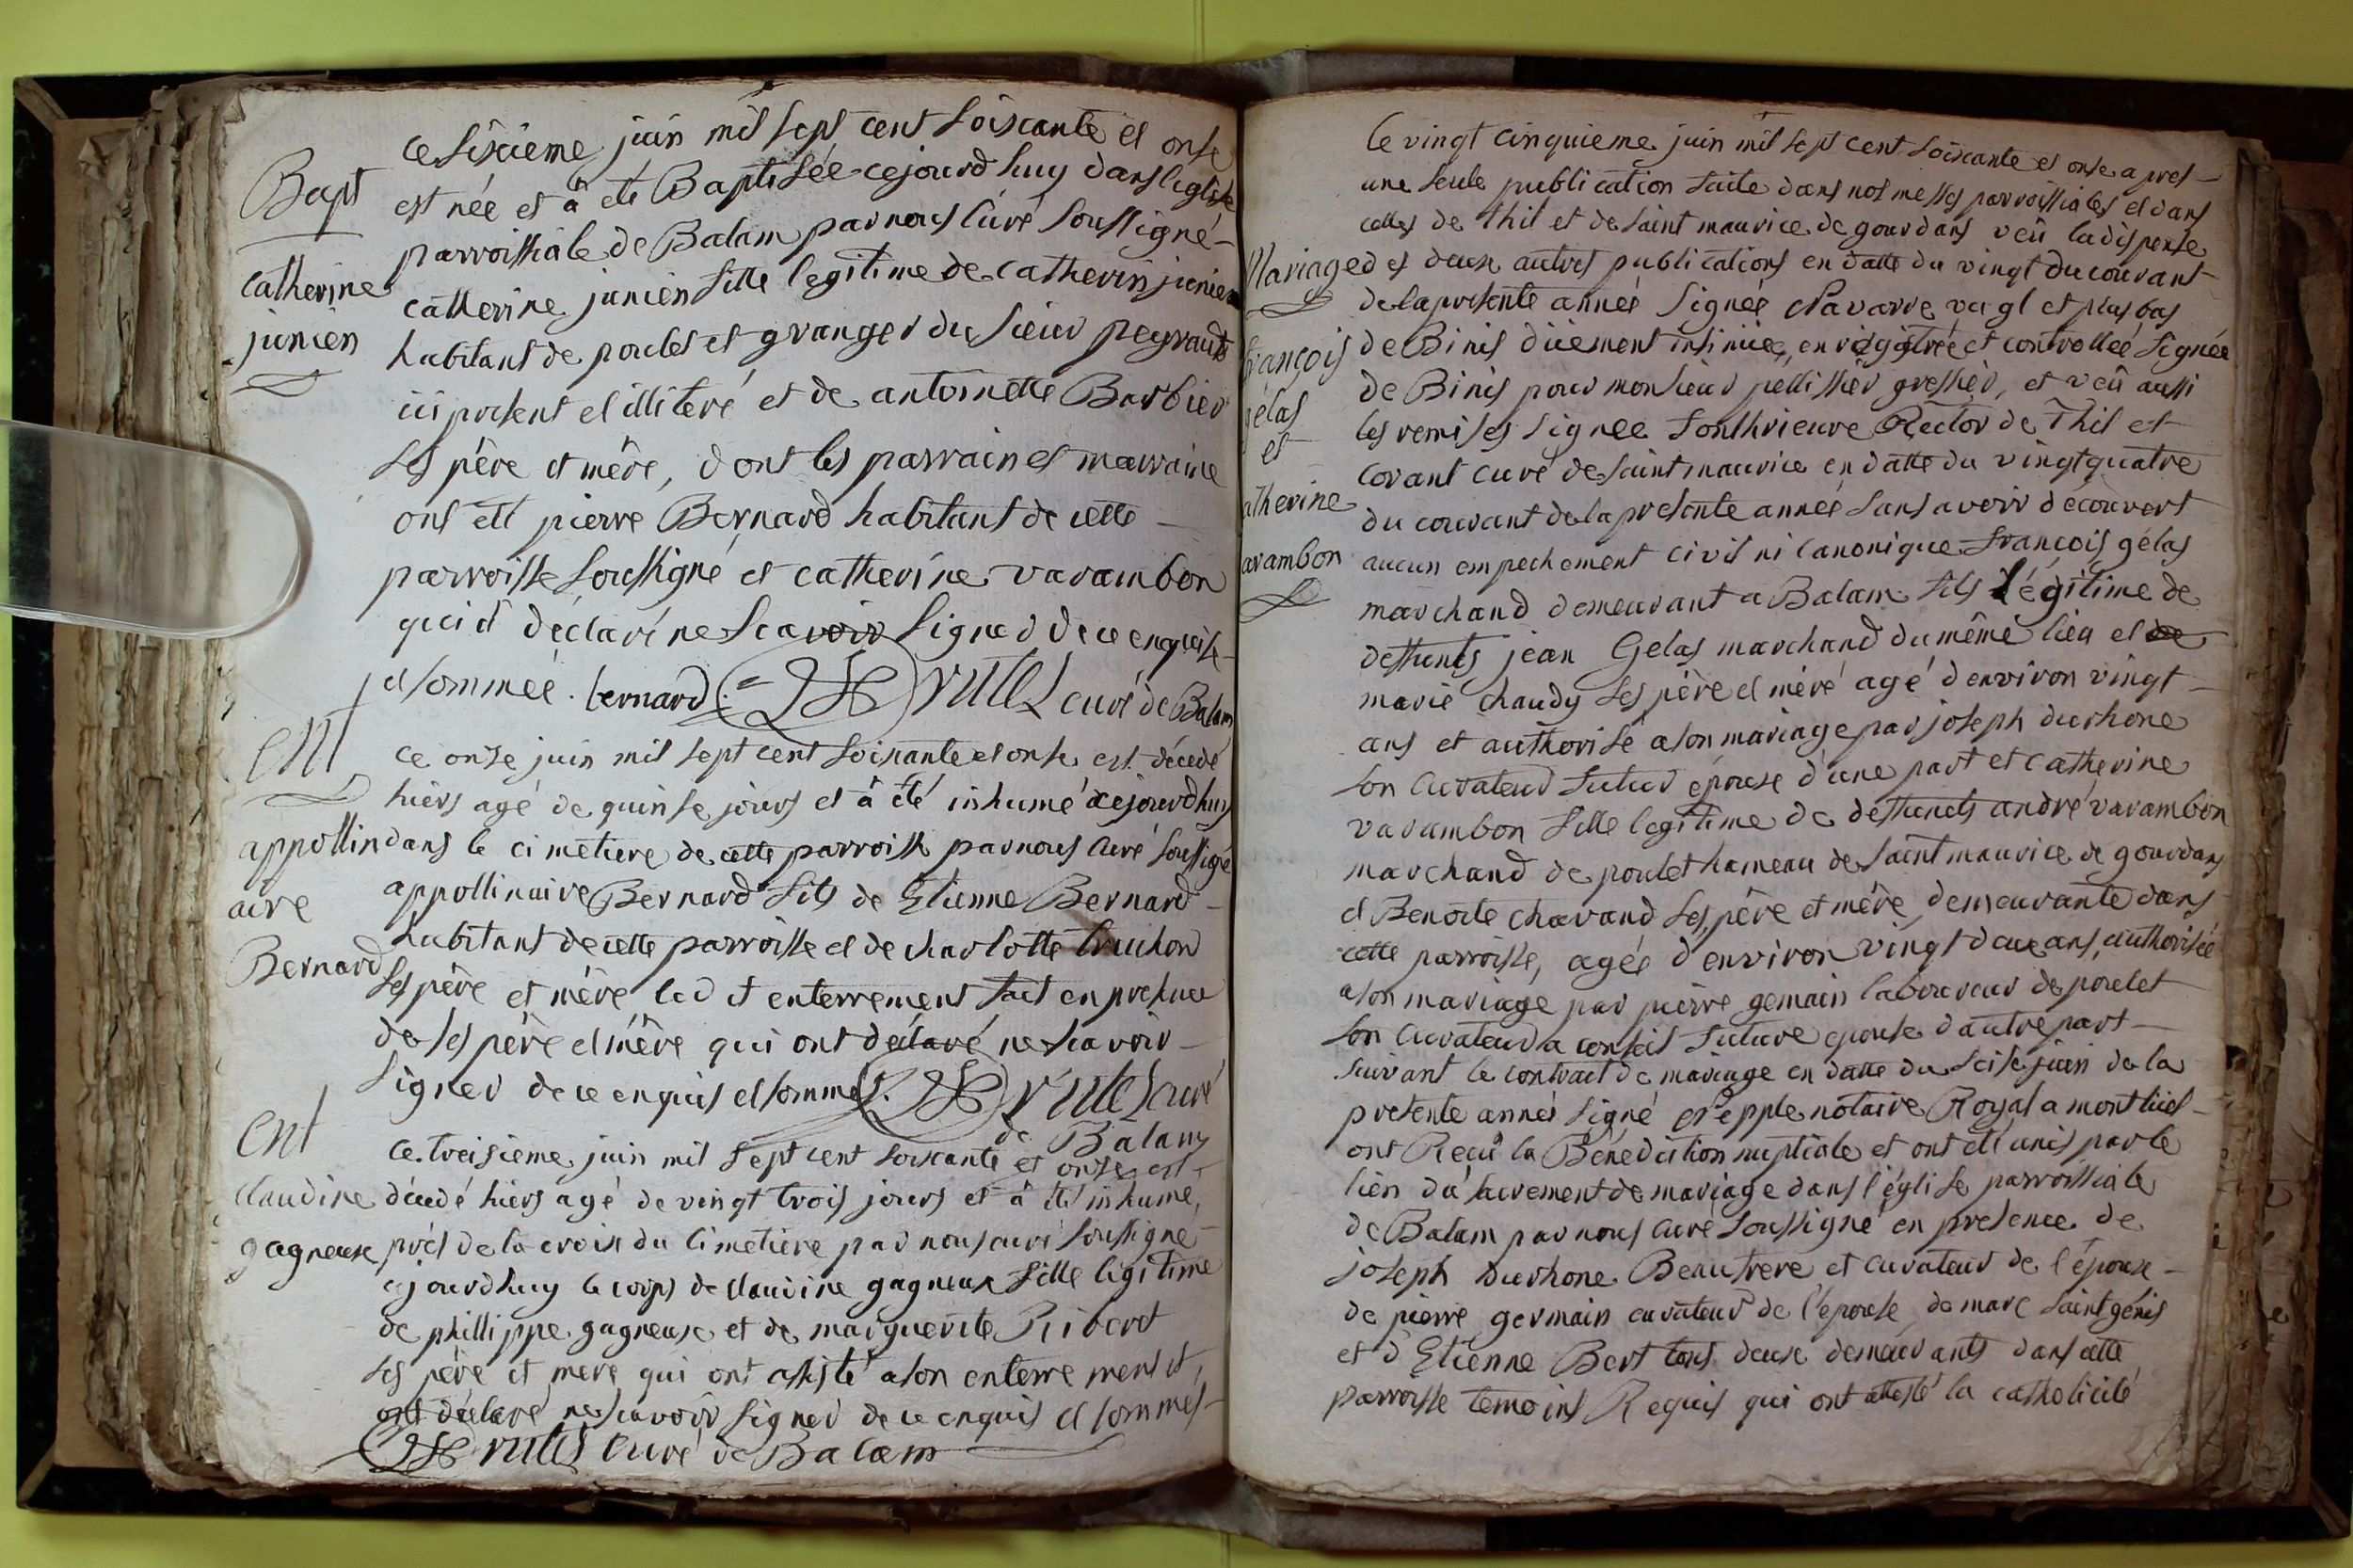 ce sixième juin mil sept cent soixante et onse
Bapt
est née et à eté Baptisée cejourd huy dans leglise
parroissiale de Balam par nous Curé soussigné
catherine
junien
catherine junien fille legitime de catherin junien
habitant de poules et granger du sieur peyraud
ici present et illiteré et de antoinette Barbier
ses pêre et mêre, dont les parrain et marraine
ont eté pierre Bernard habitant de cette
parroisse soussigné et catherine varambon
qui à déclaré ne scavoir signer de ce enquise
et sommée. bernard curé de Balam
ent
ce onse juin mil sept cent soixante et onse est décedé
hiers agé de quinse jours et à été inhumé cejourdhuy
appollin
aire
Bernard
dans le cimetiere de cette parroisse par nous curé soussigné
appollinaire Bernard fils de Etienne Bernard
habitant de cette parroisse et de charlotte
ses pêre et mêre led it enterrement fait en presence
de ses pêre et mêre qui ont déclaré ne scavoir
signer de ce enquis et sommés. curé
de Balam
ent
ce treisieme juin mil sept cent soixante et onse est
claudine
gagneux
décedé hiers agé de vingt trois jours et à été inhumé
près de la croix du cimetiere par nous curé soussigné
cejourdhuy le corps de claudine gagneux fille légitime
de phillippe gagneux et de marguerite Riberet
ses père et mere qui ont assisté a son enterrement et
ont déclaré ne scavoir signer de ce enquis et sommés
curé de Balam
le vingt cinquieme juin mil sept cent soixante et onse apres
une seule publication faite dans nos messes parroissiales et dans
celles de thil et de saint maurice de gourdans veû la dispense
Mariage
des deux autres publications en datte du vingt du courant
de la presente année signée Navarre va gl et plus bas
françois
gélas
et
atherine
arambon
de Binis düement insinuée, enregistrée et controllée signée
de Binis pour monsieur pellissier greffier, et veû aussi
les remises signee fonthrieure Rector de Thil et
Corant curé de saint maurice en datte du vingt quatre
du courant de la presente année sans avoir découvert
aucun empechement civil ni canonique françois gélas
marchand demeurant a Balam fils légitime de
deffunts jean Gelas marchand du même lieu et de
marie chaudy ses pêre et mêre agé d environ vingt
ans et authorisé a son mariage par joseph durhone
son Curateur futur épouse d une part et catherine
varambon fille legitime de deffunets andré varambon
marchand de poulet hameau de saint maurice de gourdans
et Benoite chavand ses pêre et mêre, demeurante dans
cette parroisse, agée d environ vingt deux ans, authorisée
a son mariage par pierre gemain laboureur de poulet
son Curateur a conseil future epouse d autre part
suivant le contract de mariage en datte du seise juin de la
presente année signé Nepple notaire Royal a montluel
ont Reçû la Bénédiction nuptiale et ont eté unis par le
lien du sacrement de mariage dans l'église parroissiale
de Balam par nous curé soussigné en presence de
joseph Durhone Beaufrere et curateur de l'épouse
de pierre germain curateur de l'epouse de marc saint génis
et d Etienne Bert tous deux demeurants dans cette
parroisse temoins Requis qui ont attesté la catholicité